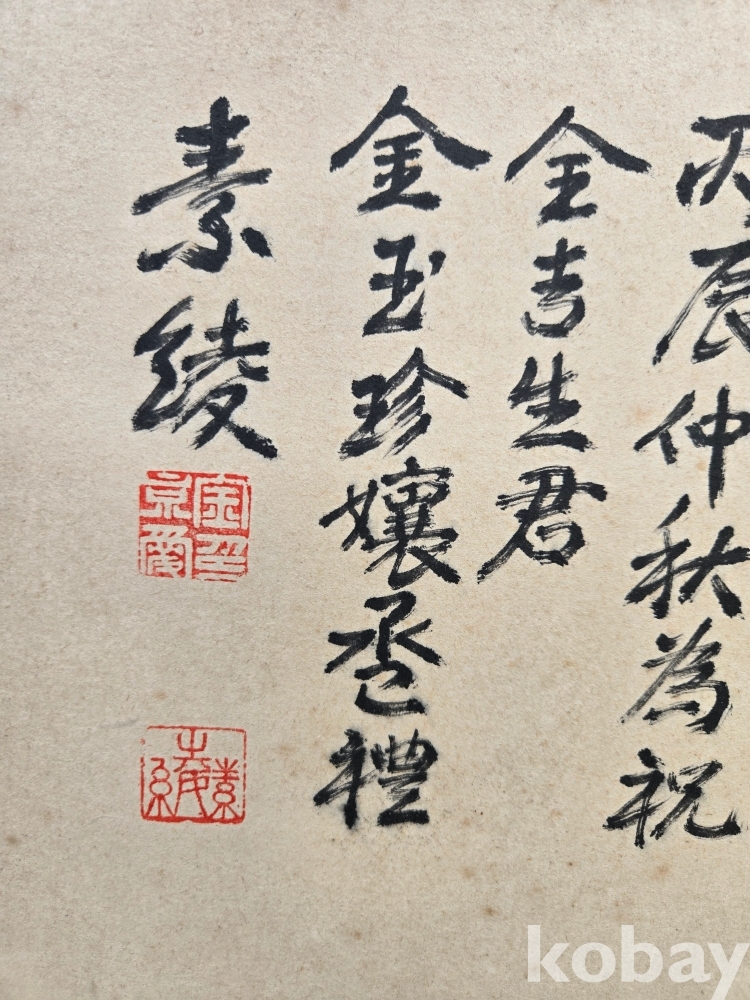 丙辰仲秋為祝
全吉生君
金玉珍孃巹禮
素綾
素綾
kobay